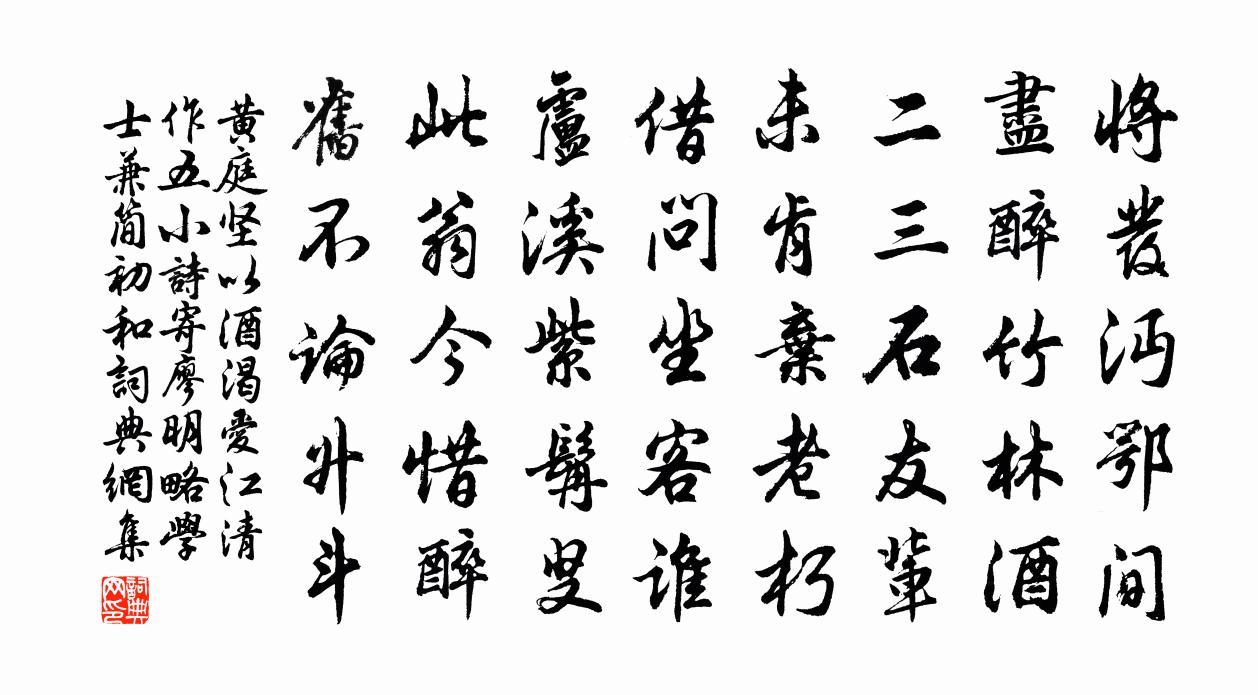 將發沔鄂間
盡醉竹林酒
二三石友輩
未肯棄老朽
借問坐客誰
盧溪紫髯叟
此翁今惜醉
舊不論升斗
黃庭坚以酒渴愛江清
作五小詩寄廖明略學
士兼簡初和詞典網集